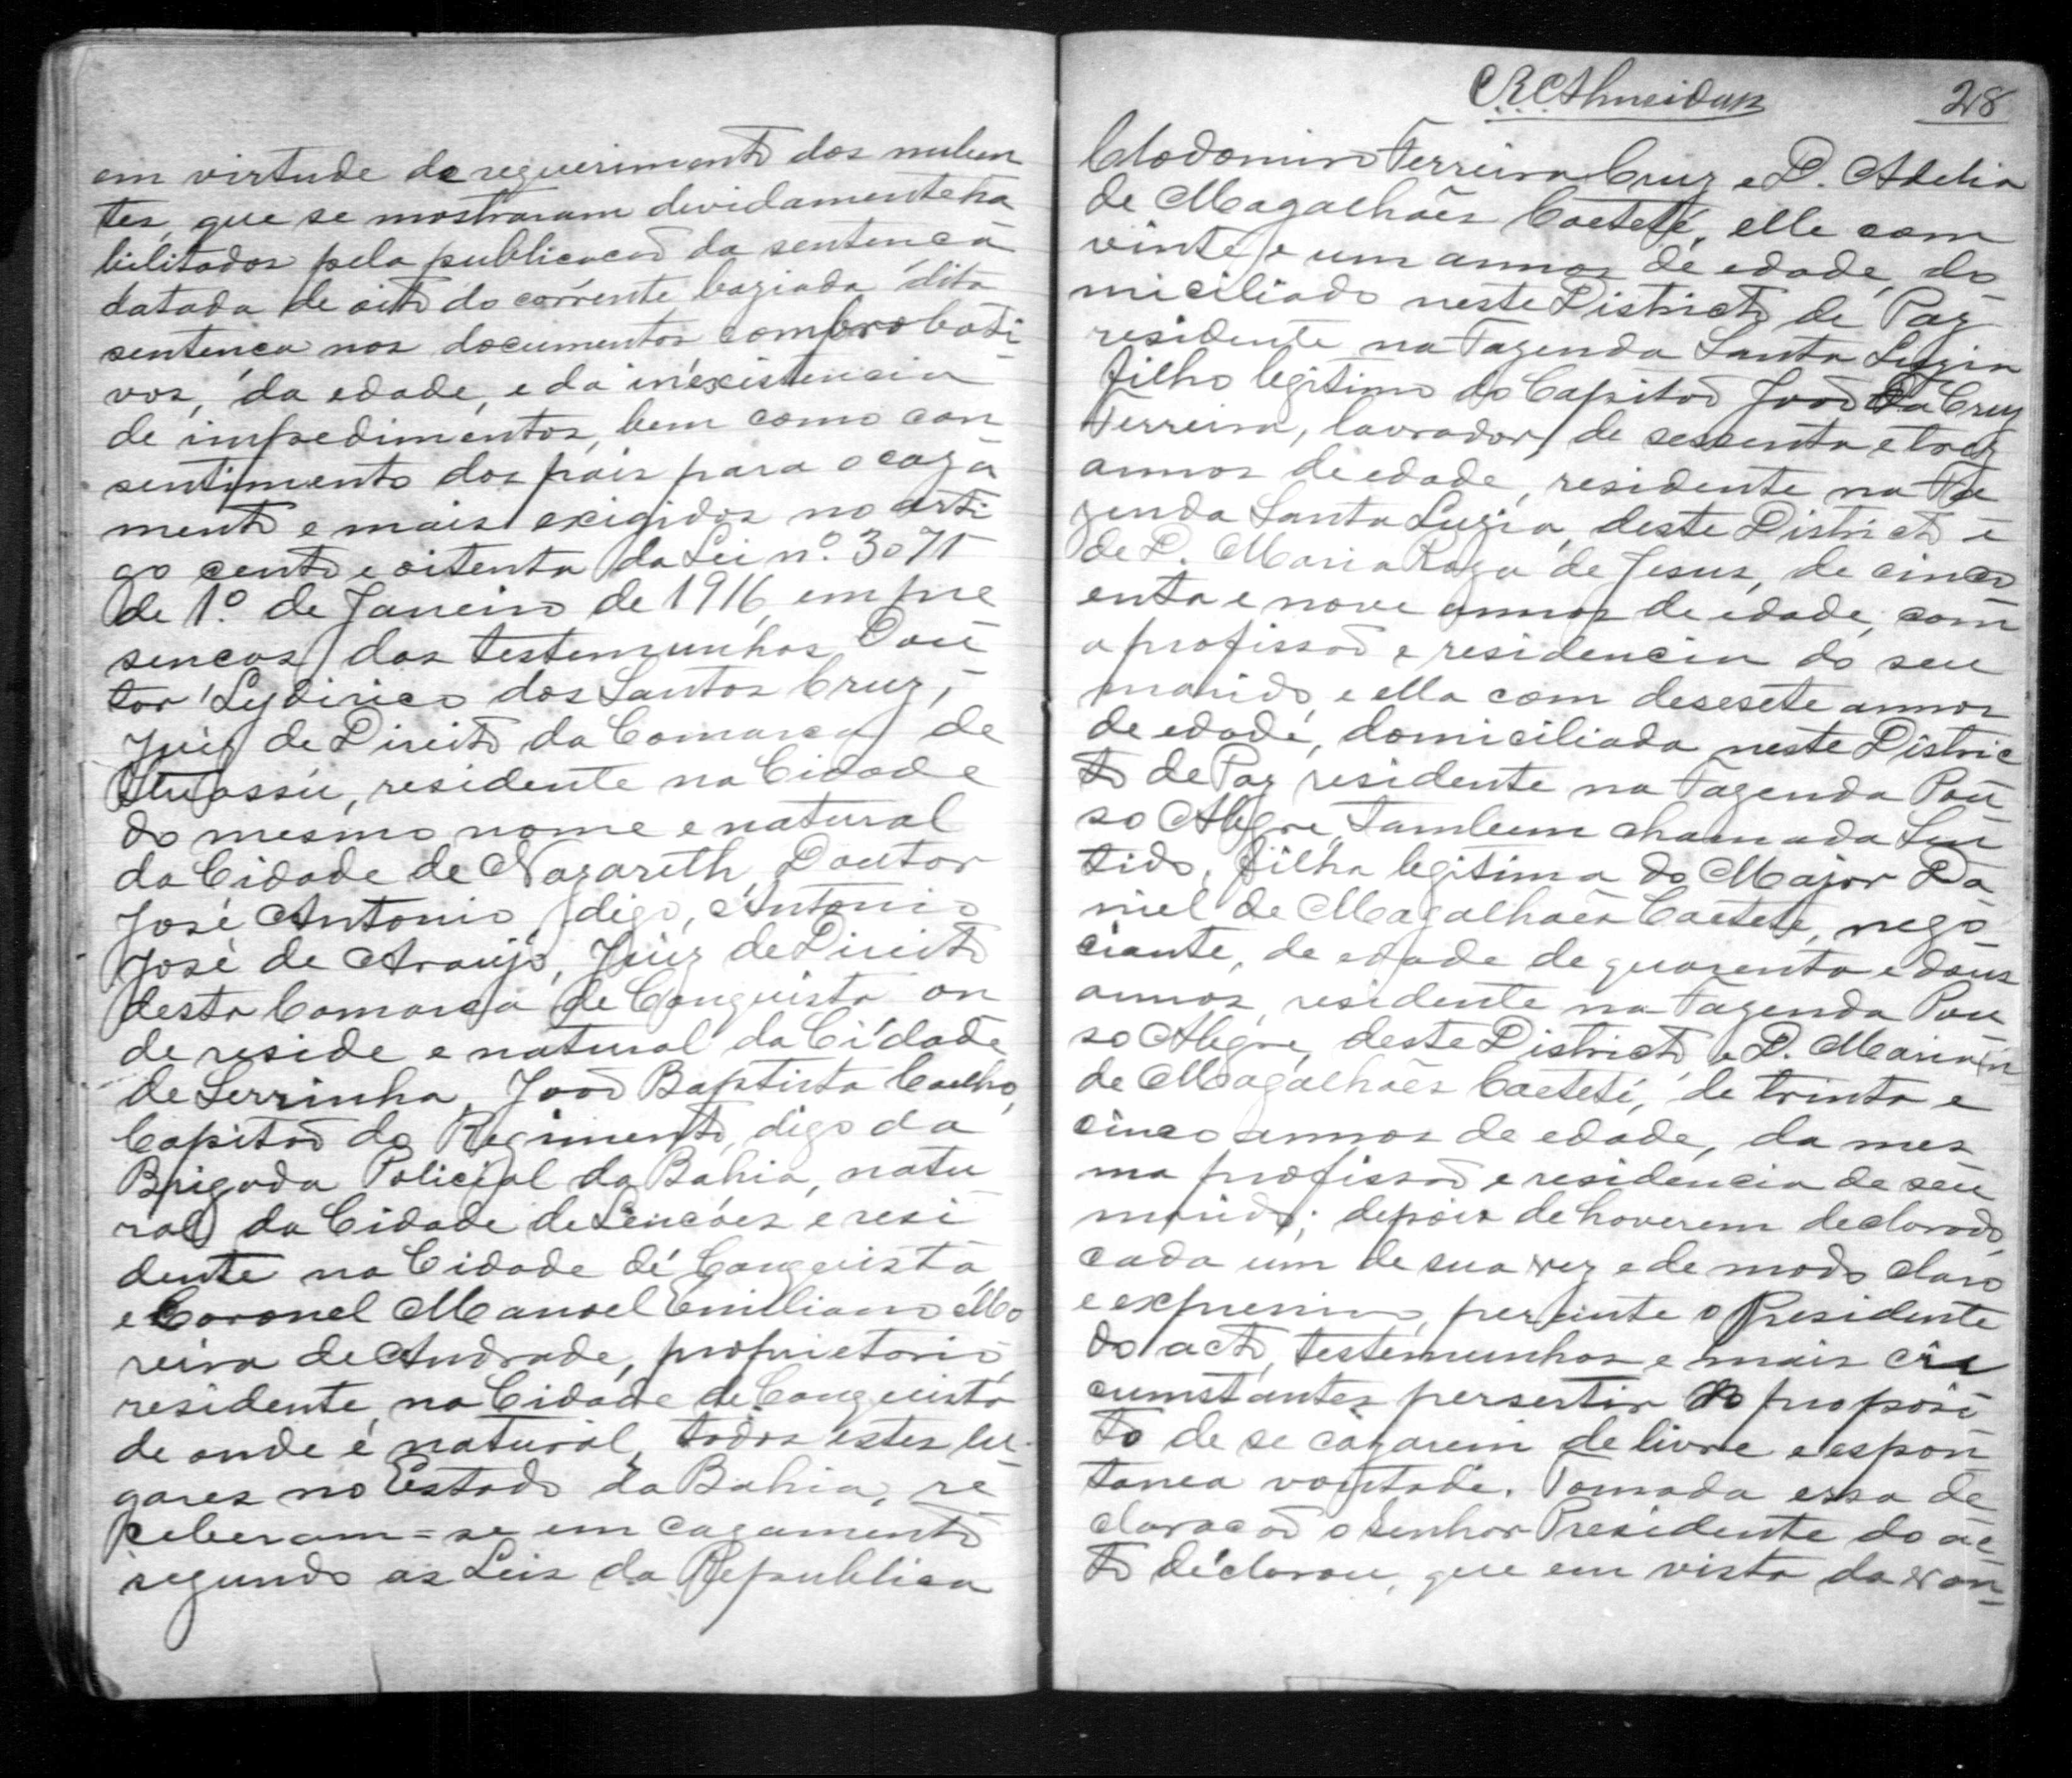 em virtude de requerimento dos nuben
tes, que se mostraram devidamente ha
bilitados pela publicacaõ da sentenca
datada de oito do corrente bazeada dita
sentenca nos documentos comprobati
vos, da edade, e da inexistencia
de impedimentos, bem como con
sentimento dos pais para o caza
mento e mais exigidos no arti
go cento e oitenta da Lei nº 3071
de 1º de Janeiro de 1916, em pre
sencas das testemunhas Dou
tor Lydirico dos Santos Cruz,
Juiz de Direito da Comarca de
Ituassú, residente na Cidade
do mesmo nome e natural
da Cidade de Nazareth, Doutor
José Antonio, digo, Antonio
José de Araujo, Juiz de Direito
desta Comarca de Conquista on
de reside e natural da Cidade
de Serrinha, Joaõ Baptista Coelho,
Capitaõ do Regimento, digo da
Brigada Policial da Bahia, natu
ral da Cidade de Lencóes e resi
dente na Cidade de Conquista
e Coronel Manoel Emiliano Mo
reira de Andrade, proprietario,
residente na Cidade de Conquista
de onde é natural, todos estes lu-
gares no Estado da Bahia, re
ceberam=se em cazamento
segundo as Leis da Republica
28
Clodomiro Ferreira Cruz e D. Adelia
de Magalhães Caeteté, elle com
vinte e um annos de edade, do
miciliado neste Districto de Paz
residente na Fazenda Santa Luzia
filho legitimo do Capitaõ Joaõ da Cruz
Ferreira, lavrador, de sessenta e trez
annos de edade, residente na Fa
zenda Santa Luzia, deste Districto e
de D. Maria Roza de Jesus, de cinco
enta e nove annos de edade, com
a profissaõ e residencia do seu
marido, e ella com desesete annos
de edade, domiciliada neste Distric
to de Paz residente na Fazenda Pou
so Alegre, tambem chamada
filha legitima do Major Da
niel de Magalhães Caeteté, nego
ciante, de edade de quarenta e dous
annos, residente na Fazenda Pou
so Alegre, deste Districto, e D. Maria
de Magalhães Caeteté, de trinta e
cinco annos de edade, da mes
ma profissaõ e residencia de seu
marido; depois de haverem declarado,
cada um de sua vez e de modo claro
e expressivo, perante o Presidente
do acto, testemunhas e mais cir
cumstantes persestir no proposi
to de se cazarem de livre e espon
tanea vontade. Tomada essa de
claracaõ o Senhor Presidente do ac
to declarou, que em vista da von-